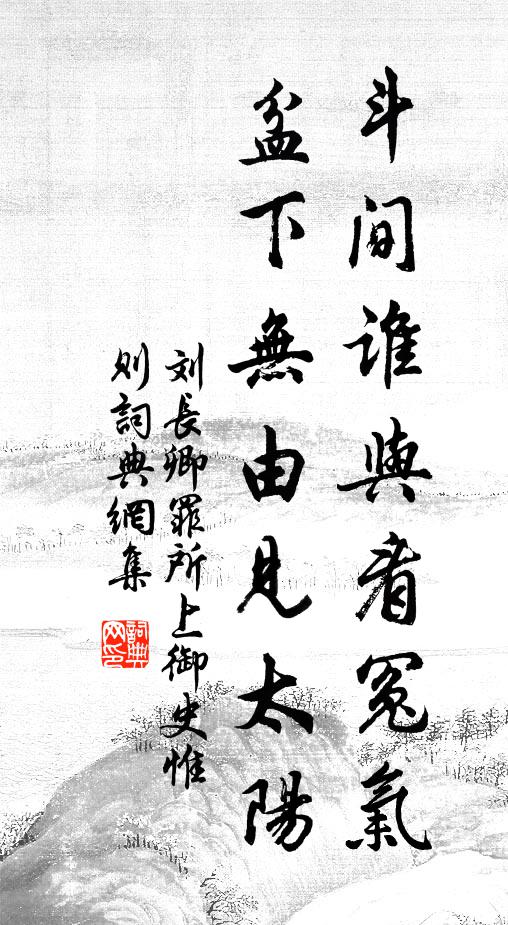 斗間誰與看冤氣
盆下無由見太陽
刘長卿罪所上御史惟
则詞典網集
詞典网印